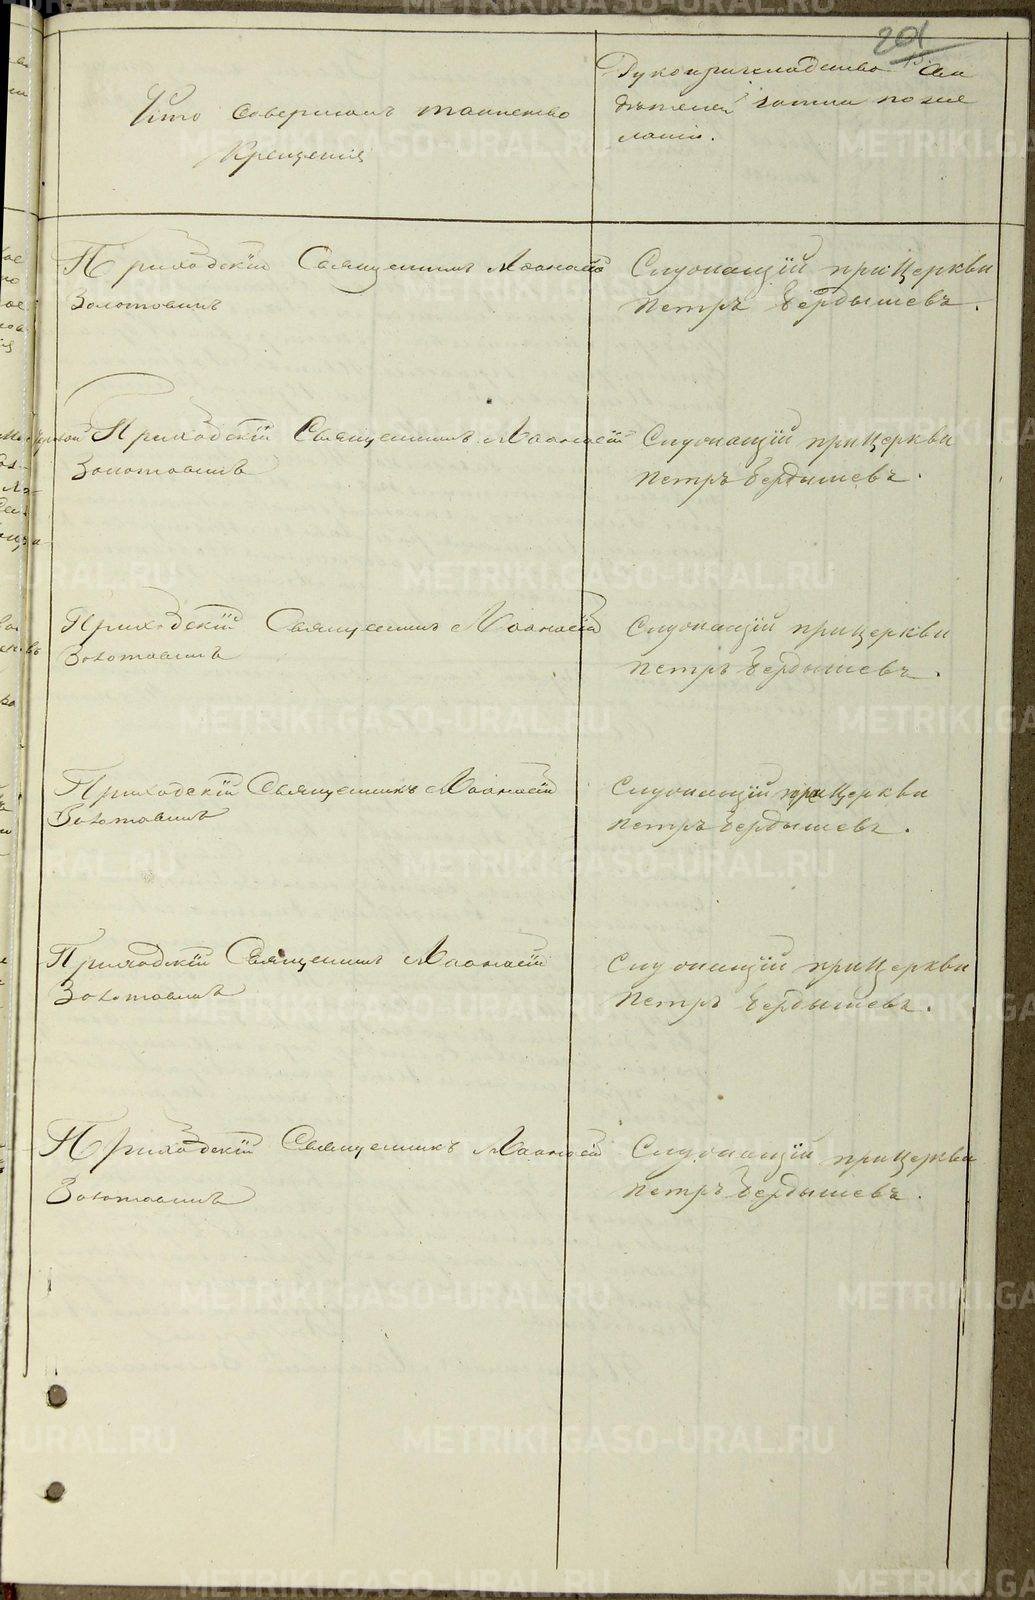 201
Кто совершалъ таинство
Крещенія
Рукоприкладство сви
дѣтелей записи по же
ланію.
Приходскій Священникъ Аѳанасій
Золотавинъ
Служащій при Церкви
Петръ Бердышевъ.
Приходскій Священникъ Аѳанасій
Золотавинъ
Служащій при Церкви
Петръ Бердышевъ.
Приходскій Священникъ Аѳанасій
Золотавинъ
Служащій при Церкви
Петръ Бердышевъ.
Приходскій Священникъ Аѳанасій
Золотавинъ
Служащій при Церкви
Петръ Бердышевъ.
Приходскій Священникъ Аѳанасій
Золотавинъ
Служащій при Церкви
Петръ Бердышевъ.
Приходскій Священникъ Аѳанасій
Золотавинъ
Служащій при Церкви
Петръ Бердышевъ.
METRIKI.GASO-URAL.RU